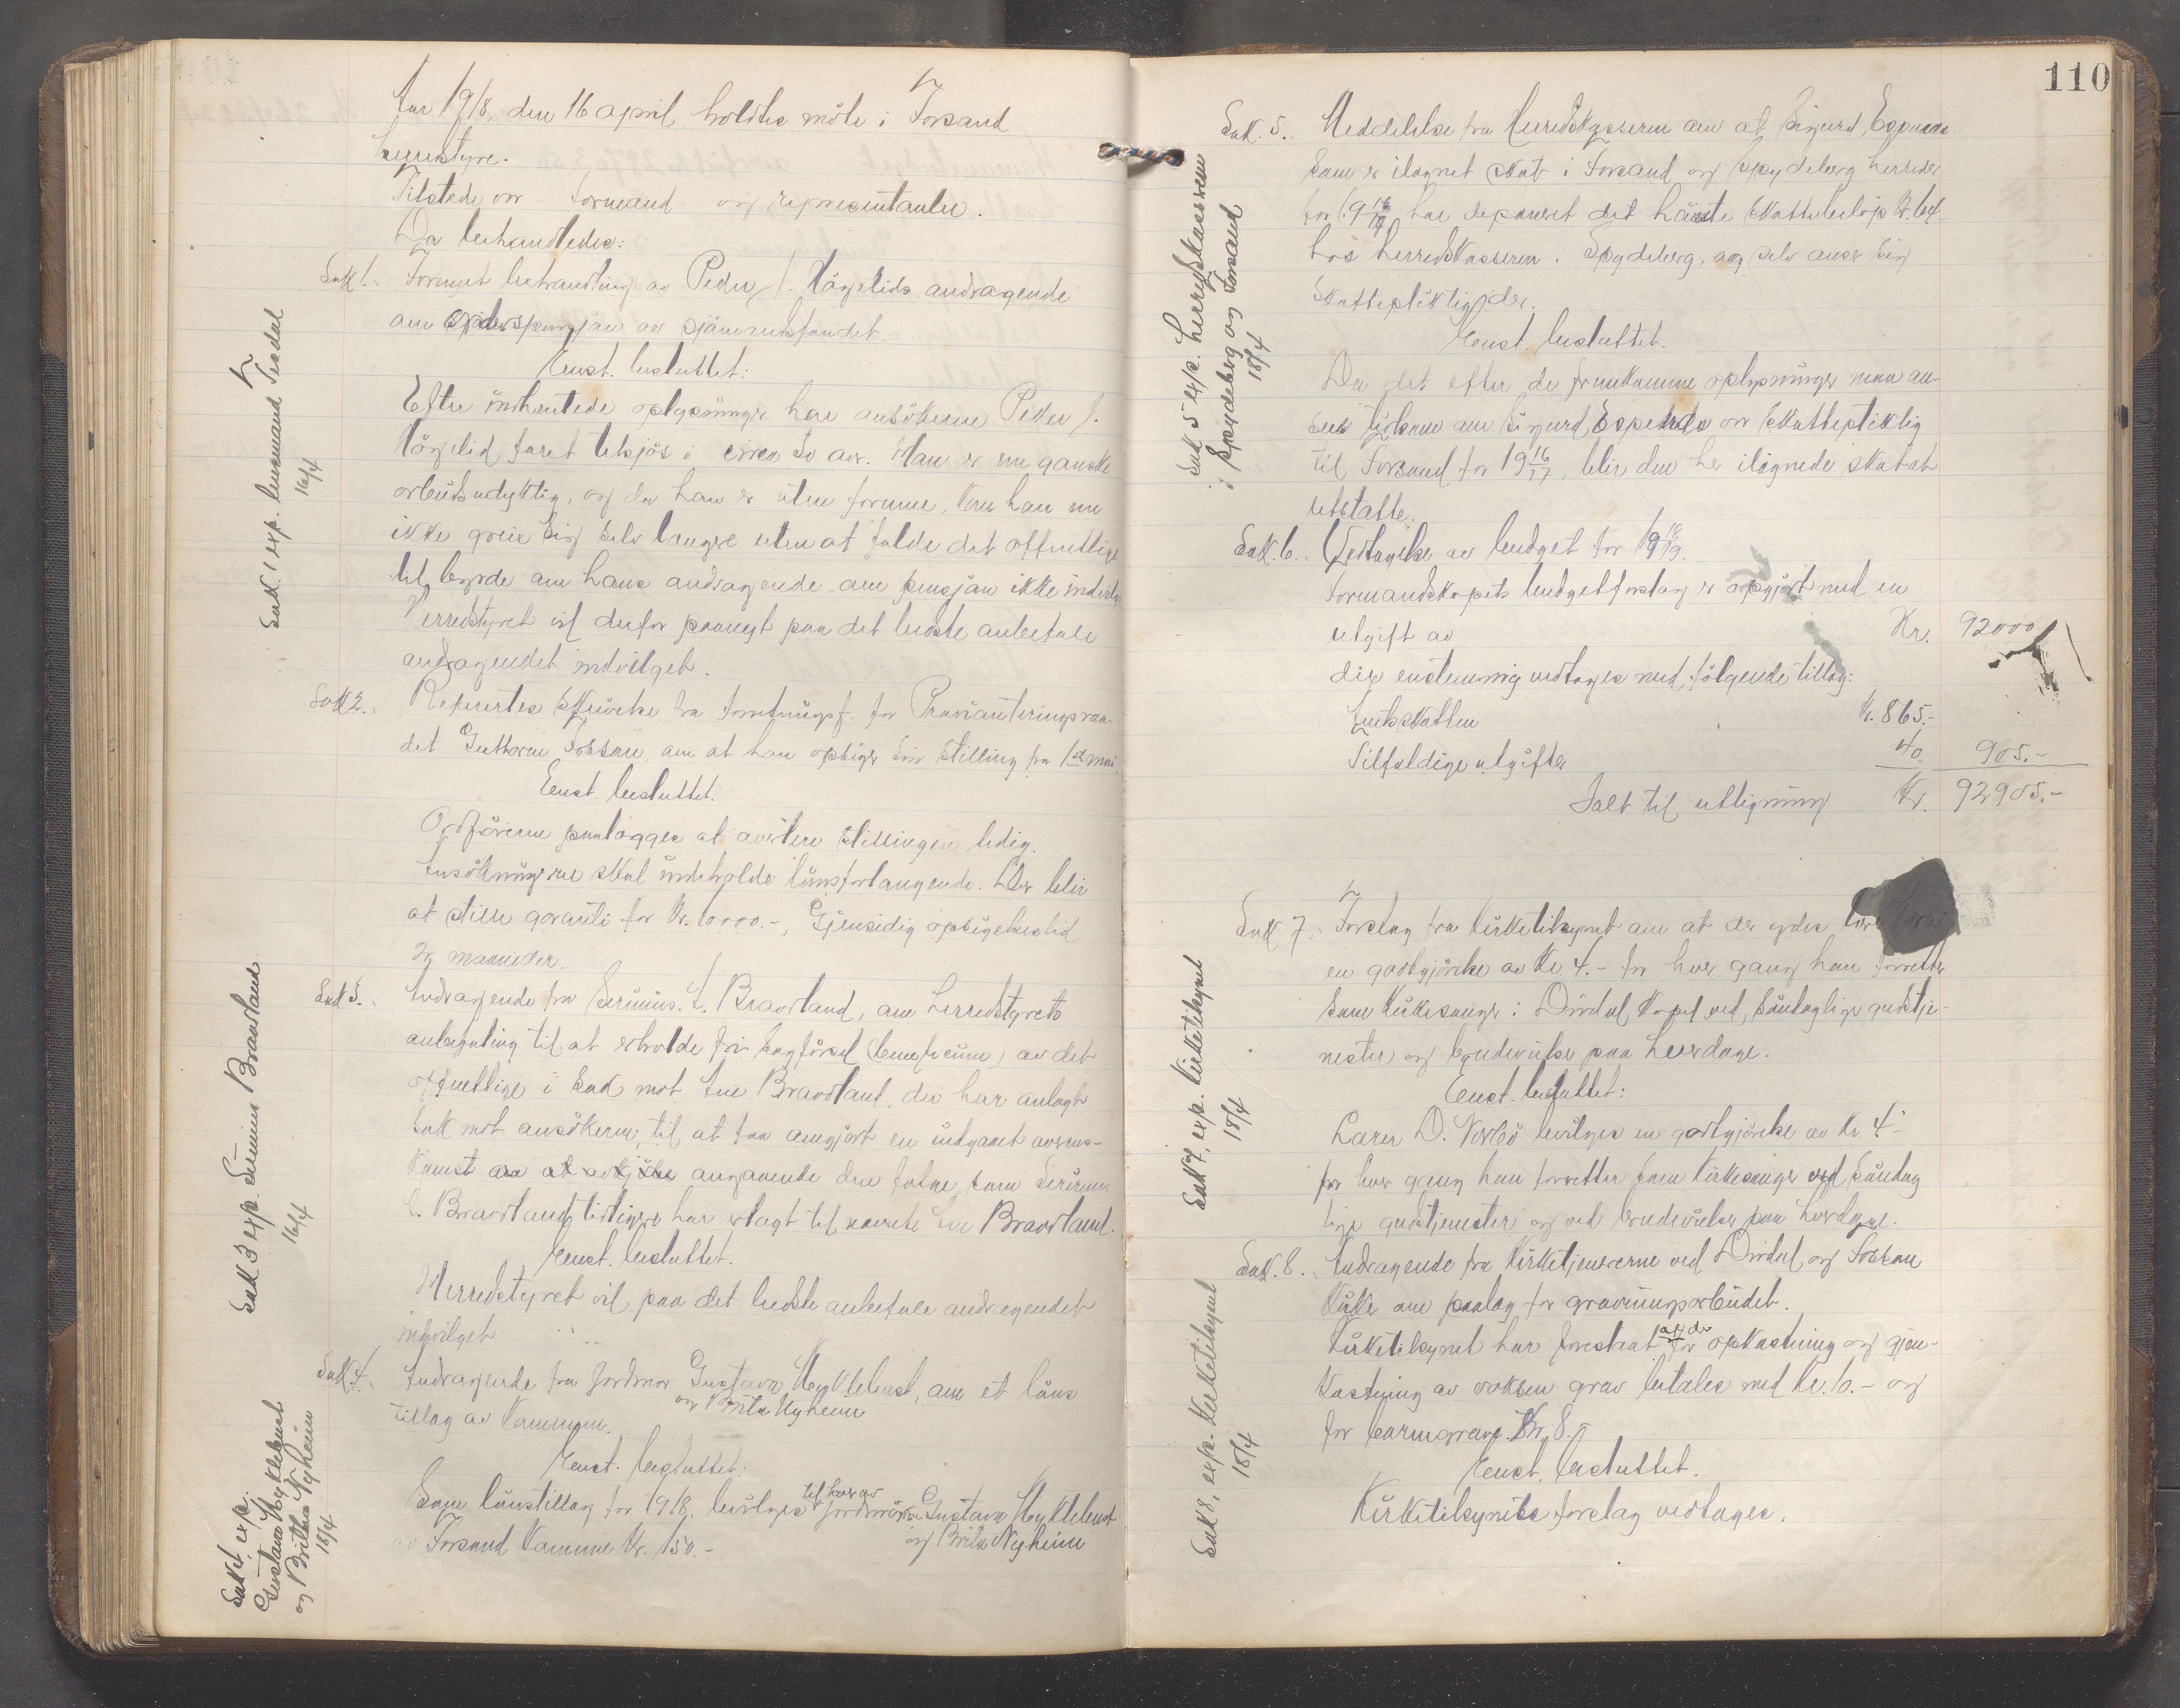 Aar 1918, den 16 april holdtes möte i Forsand
herredstyre.
Tilstede var formand og representanter.
Da behandledes:
Sak 1. Fornyet behandling av Peder J. Högelids andragende
om pensjon av sjömandsfondet.
Enst. besluttet:
Efter indhentede oplysninger har ansökeren Peder J.
Högelid faret tilsjös i circa 30 aar. Han er nu ganske
arbeidsudyktig, og da han er uten formue, kan han nu
ikke greie sig selv længre uten at falde det offentlige
til byrde om hans andragende om pensjon ikke indvilges
Herredstyret vil derfor paanyt paa det bedste anbefale
andragendet indvilget.
Sak 2. Refertes skrivelse fra forretningsf. for Provianteringsraa-
det Guttorm Fossan, om at han opsiger sin stilling fra 1ste mai.
Enst. besluttet.
Ordföreren paalægges at avertere stillingen ledig.
Ansökningerne skal indeholde lönsforlangende. Der blir
at stille garanti for Kr. 10000.-, Gjensidig opsigelsestid
maaneder.
Sak 3. Andragende fra Serinius L. Bravrland, om herredstyrets
anbefaling til at erholde fri sagförsel (beneficium) av det
offentlige i sak mot Ane Bravrland, der har anlagt
sak mot ansökeren, til at faa omgjort en indgaaet overens-
komst angaaende den som Serinius
L. Bravrland tidligere har erlagt til nævnte Ane Bravrland.
Enst. besluttet.
Herredstyret vil paa det bedste anbefale andragendet
indvilget
Sak 4. Andragende fra jordmor Gustava Myklebust, om et löns
og Brita Nyheim
tillæg av kommunen.
Enst. besluttet:
Som lönstillæg for 1918 bevilges til hver av jordmödrene Gustava Myklebust
av Forsand kommune Kr. 150.- og Brita Nyheim
Sak 1 exp. lensmand Tesdal
16/4
Sak 3 exp. Serinius Bravrland
16/4
Sak 4 exp.
Gustava Myklebust
og Britha Nyheim
18/4
110
Sak. 5. Meddelelse fra Herredskasseren om at Sigurd Espeda
som er ilagnet skat i Forsand og Spydeberg herreder
for 19 har deponeret det höieste skattebelöp
hos herredskasseren i Spydeberg, og selv anser sig
skattepliktig der.
Enst. besluttet.
Da det efter de fremkomne oplysninger maa an-
sees som om Sigurd Espedal var skattepliktig
til Forsand for 1916/17, blir den her ilignede skat at
utbetale.
Sak. 6. Vedtagelse av budget for 1918/19.
Formandskapets budgetforslag er opgjort med en
utgift av Kr. 92000
der enstemmig vedtages med fölgende tillæg:
Kr. 865.-
Tilfældige utgifter 40. 905.-
Ialt til utligning Kr. 92905.-
Sak 7. Forslag fra kirketilsynet om at der ydes
en godtgjörelse av Kr 4.- for hver gang han forretter
som kirkesanger i Dirdal kapel ved söndaglige gudstje-
nester og brudevielse paa hverdage.
Enst. besluttet:
Lærer D. bevilges en godtgjörelse av Kr. 4.-
for hver gang han forretter som kirkesanger ved söndag
lige gudstjenester og ved brudevielse paa hverdage.
Sak. 8. Andragende fra kirketjenerne ved Dirdal og Fossan
kirke om paalæg for gravningsarbeidet.
Kirketilsynet har foreslaat at der for opkastning og gjen-
kastning av voksen grav betales med Kr. 10.- og
for barnegrave Kr. 8.-
Enst. besluttet.
Kirketilsynets forslag vedtages.
Sak 5 exp. herredskasseren
i Spydeberg og Forsand
18/4
Sak 7, exp. kirketilsynet
18/4
Sak 8, exp. Kirketilsynet
18/4